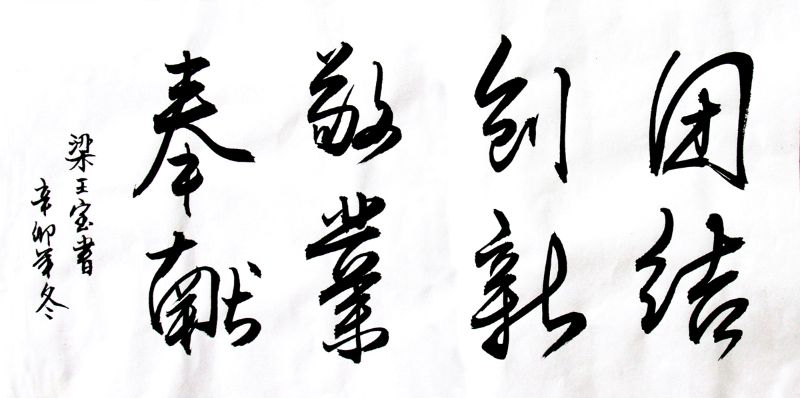 团结
创新
敬業
奉献
梁王宝書
辛卯年冬